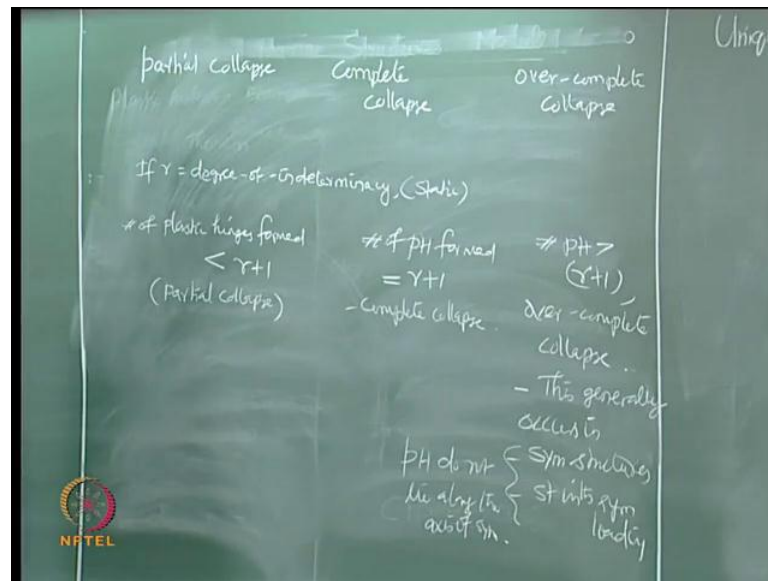 Uniq
partial collapse
Complete
collapse
over-complete
collapse
If r = degree-of-indeterminacy, (static)
# of plastic hinges formed
< r+1
(partial collapse)
# of pH formed
= r+1
- Complete collapse.
# pH >
(r+1)
over-complete
collapse.
- This generally
occurs in
sym structures
pH do not
lie along the
axis of sym.
sym
loading
NPTEL